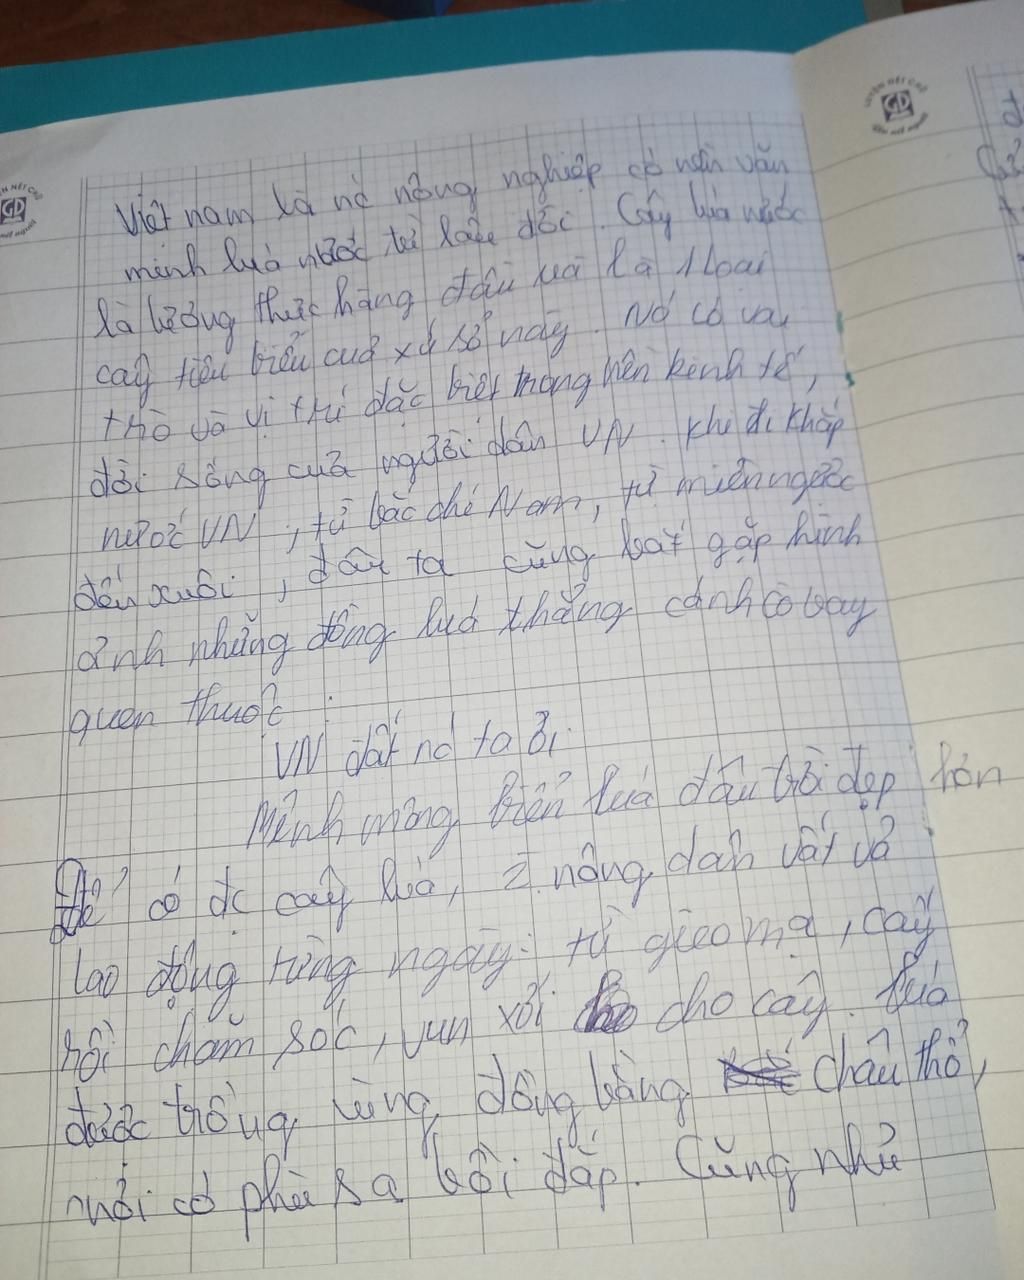 Việt nam là nc nông nghiệp có nền văn
minh luá nước từ lâu đời. Cây lúa nước
là lương thực hàng đầu và là 1 loại
cây tiêu biểu cuả xứ sở này. Nó có vai
trò và vị trí đặc biệt trong nền kinh tế,
đời sống cuả người dân VN. Khi đi khắp
nước VN, từ bắc chí Nam, từ miền ngược
đến xuôi, đâu ta cũng bắt gặp hình
ảnh những đồng luá thẳng cánh cò bay
quen thuộc.
VN đất nc ta ơi
Mênh mông biển luá đâu trời đẹp hơn
Để có đc cây lúa, nông dân vất vả
lao động từng ngày: từ gieo mạ, cấy
rồi chăm sóc, vun xới cho cây. Luá
được trồng vùng đồng bằng châu thổ,
nơi có phù sa bồi đắp. Cũng như
GD
GD